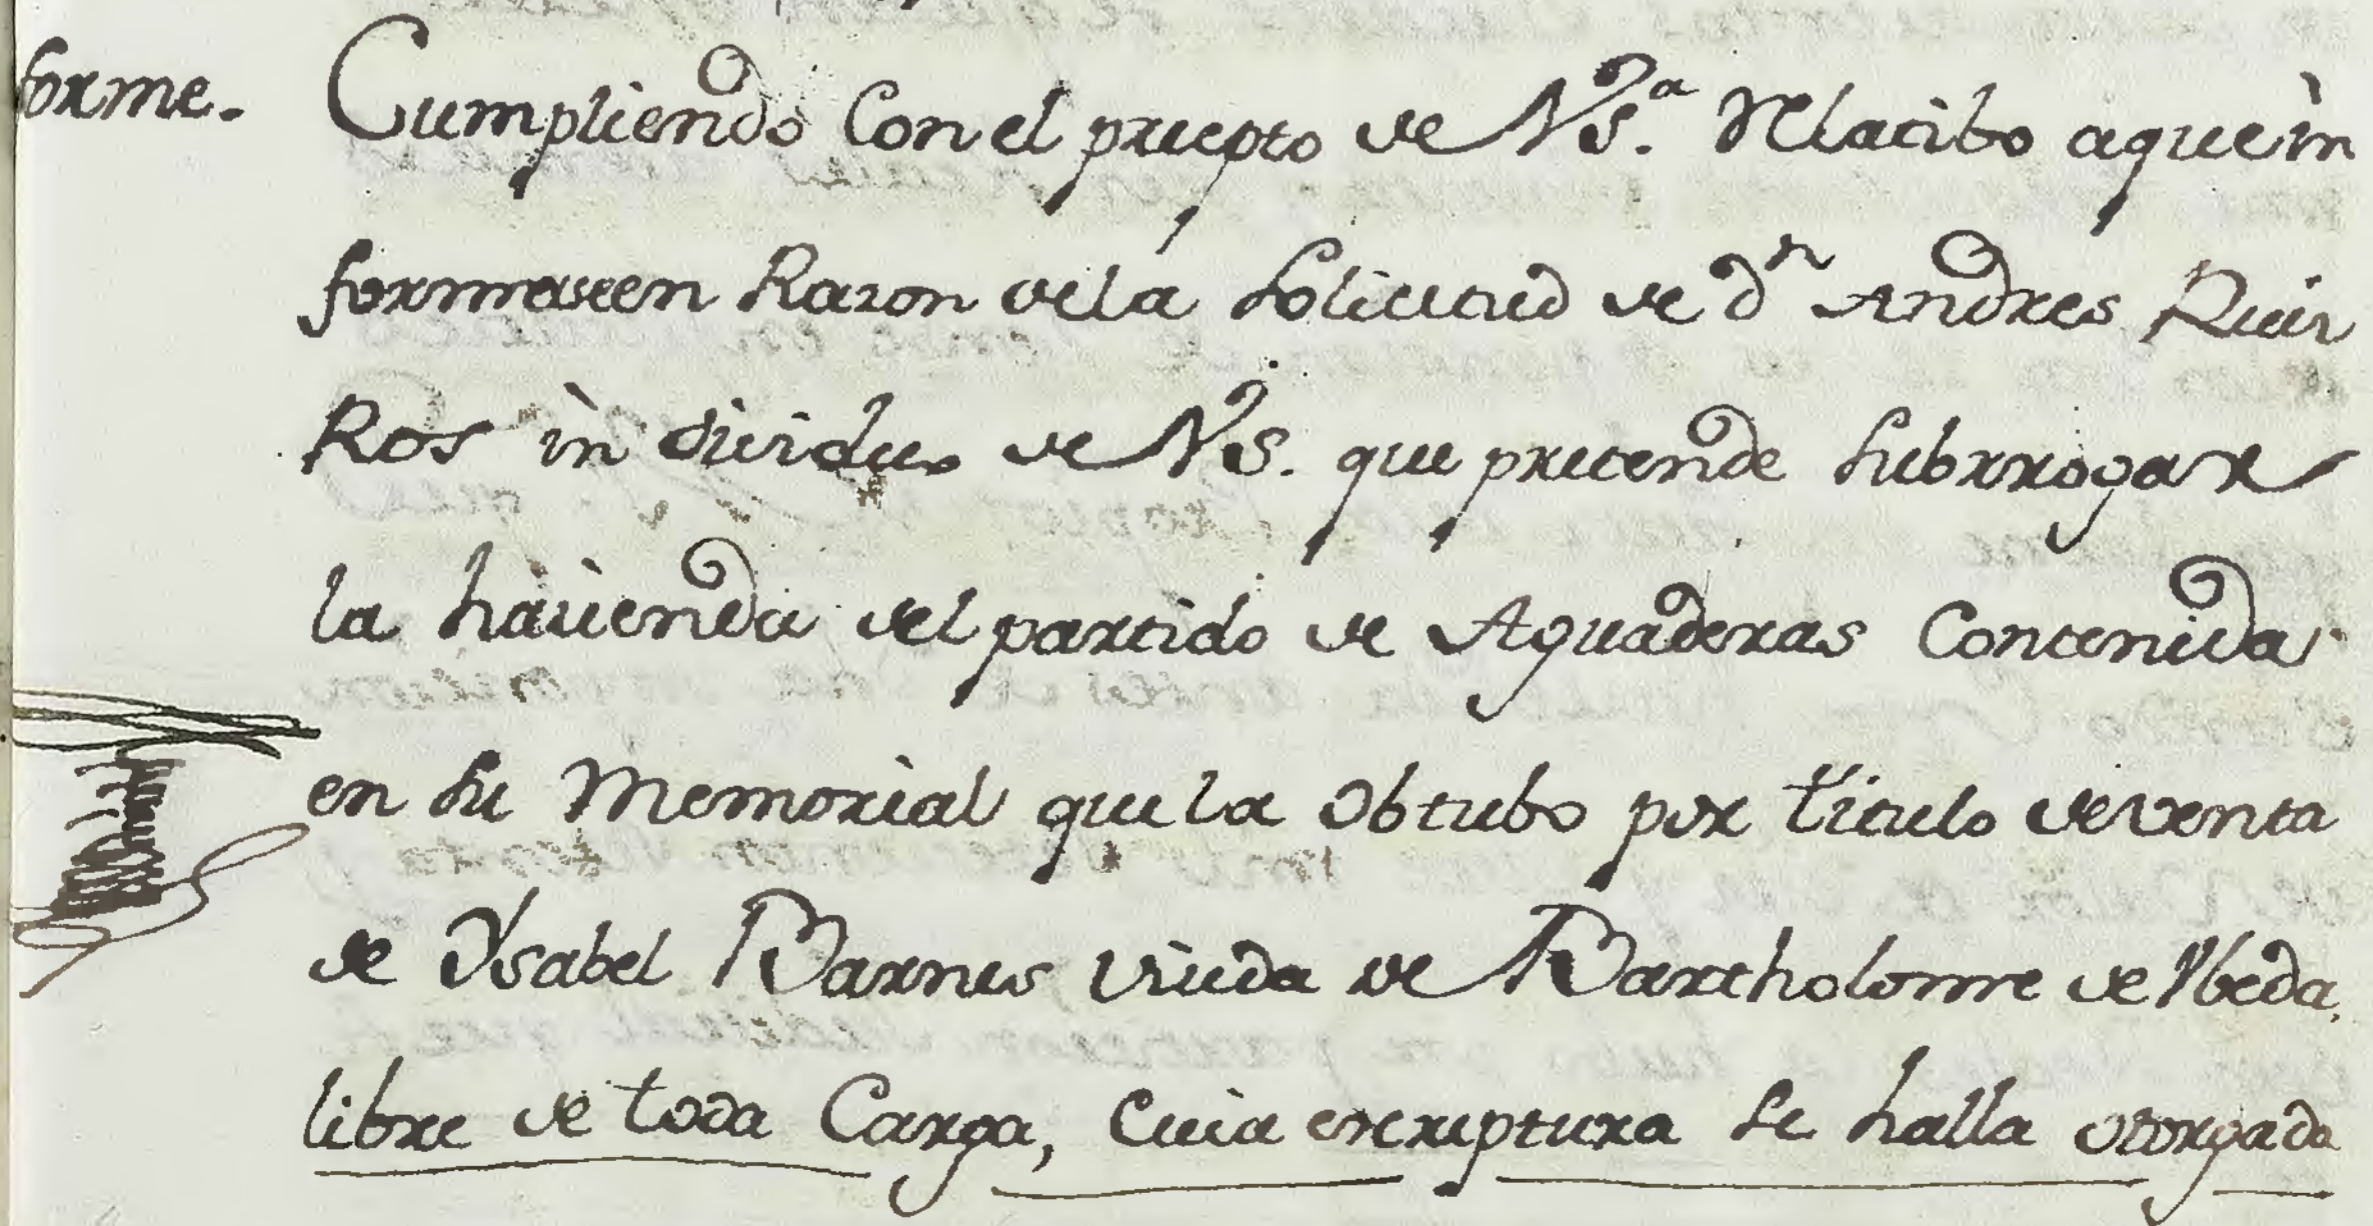 forme. Cumpliendo Con el precepto de VS.ª Relatibo aque in
formase en Razon dela Solicitud de Dn Andres Ruiz
Ros in dividuo de VS. que pretende Subrrogar
la hacienda del partido de Aguaderas Contenida
en Su Memorial que la Obtubo por titulo de venta
de Ysabel Barnes Viuda de Bartholome de Vbeda,
libre de toda Carga, Cuia escriptura Se halla otorgada